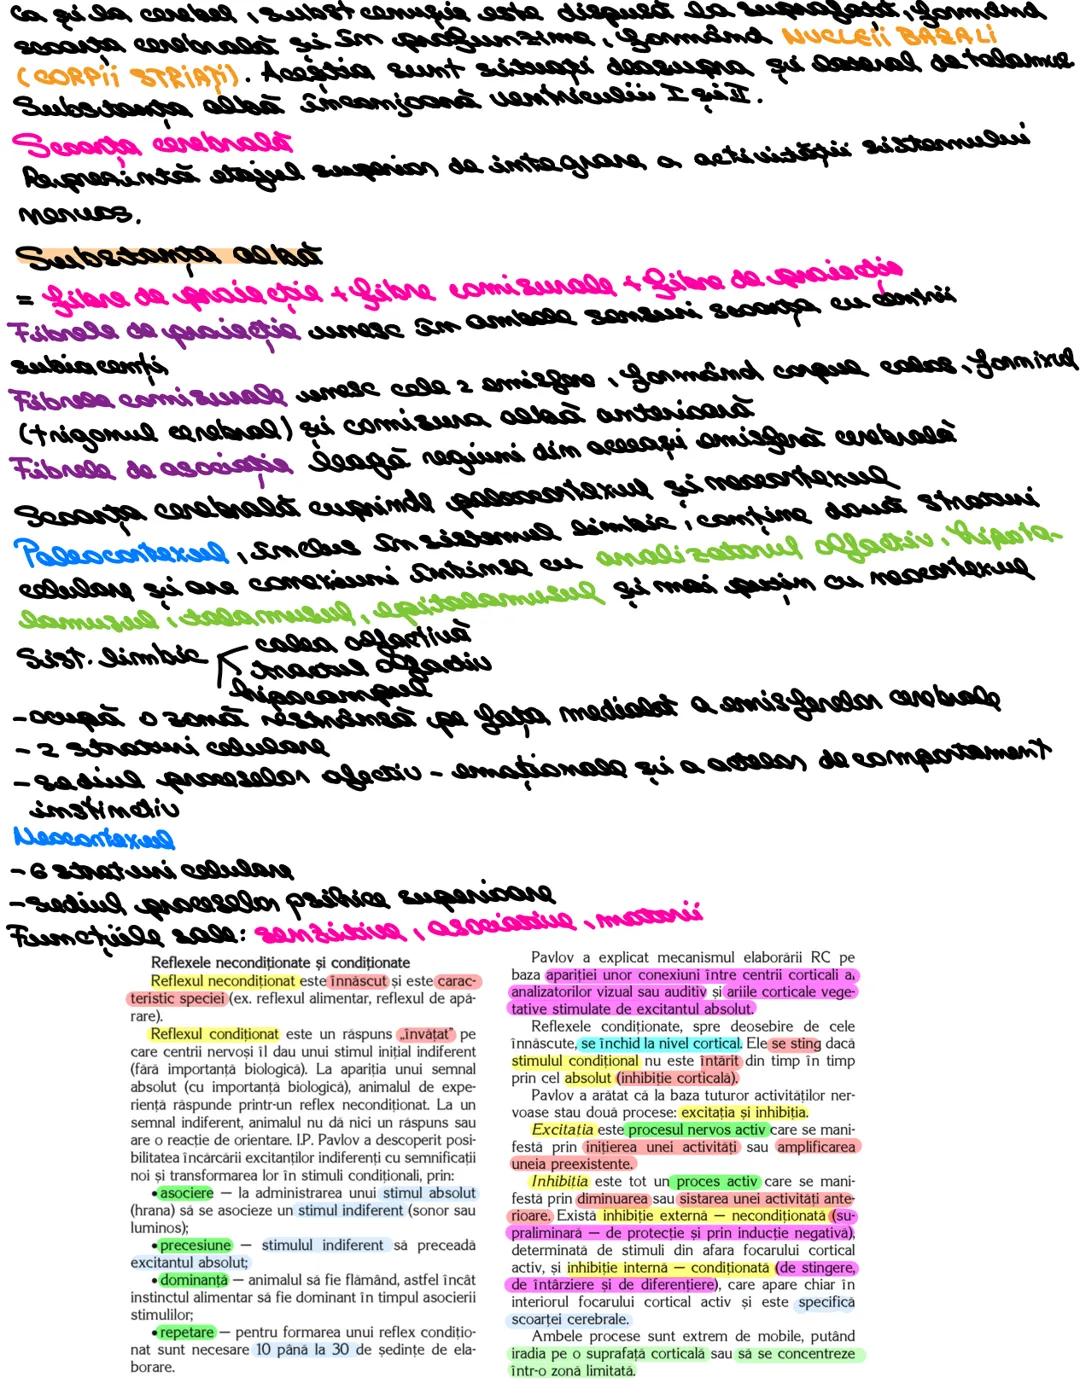 Ca și la cerebel, subst cenușie este dispusă la suprafață, formând
scoarța cerebrală și în profunzime, formând NUCLEII BAZALI
(CORPII STRIAȚI). Aceștia sunt situați deasupra și lateral de talamus
Substanța albă înconjoară ventriculii I și II.
Scoarța cerebrală
Reprezintă etajul superior de integrare a activității sistemului
nervos.
Substanța albă
= fibre de proiecție + fibre comisurale + fibre de proiecție
Fibrele de proiecție unesc în ambele sensuri scoarța cu centrii
subiacenți
Fibrele comisurale unesc cele 2 emisfere, formând corpul calos, fornixul
(trigonul cerebral) și comisura albă anterioară
Fibrele de asociație leagă regiuni din aceeași emisferă cerebrală
Scoarța cerebrală cuprinde paleocortexul și neocortexul
Paleocortexul, inclus în sistemul limbic, conține două straturi
celulare și are conexiuni întinse cu analizatorul olfactiv, hipota-
lamusul, talamusul, epitalamusul și mai puțin cu neocortexul
Sist. limbic calea olfactivă
tractul olfactiv
hipocampul
- ocupă o zonă restrânsă pe fața medială a emisferelor cerebrale
- 2 straturi celulare
- sediul proceselor afectiv - emoționale și a actelor de comportament
instinctiv
Neocortexul
- 6 straturi celulare
- sediul proceselor psihice superioare
Funcțiile sale: senzitive, asociative, motorii
Reflexele necondiționate și condiționate
Reflexul necondiționat este înnăscut și este carac-
teristic speciei (ex. reflexul alimentar, reflexul de apă-
rare).
Reflexul condiționat este un răspuns „învățat” pe
care centrii nervoși îl dau unui stimul inițial indiferent
(fără importanță biologică). La apariția unui semnal
absolut (cu importanță biologică), animalul de expe-
riență răspunde printr-un reflex necondiționat. La un
semnal indiferent, animalul nu dă nici un răspuns sau
are o reacție de orientare. I.P. Pavlov a descoperit posi-
bilitatea încărcării excitanților indiferenți cu semnificații
noi și transformarea lor în stimuli condiționali, prin:
• asociere — la administrarea unui stimul absolut
(hrana) să se asocieze un stimul indiferent (sonor sau
luminos);
• precesiune — stimulul indiferent să preceadă
excitantul absolut;
• dominanță — animalul să fie flămând, astfel încât
instinctul alimentar să fie dominant în timpul asocierii
stimulilor;
• repetare — pentru formarea unui reflex condițio-
nat sunt necesare 10 până la 30 de ședințe de ela-
borare.
Pavlov a explicat mecanismul elaborării RC pe
baza apariției unor conexiuni între centrii corticali a.
analizatorilor vizual sau auditiv și ariile corticale vege-
tative stimulate de excitantul absolut.
Reflexele condiționate, spre deosebire de cele
înnăscute, se închid la nivel cortical. Ele se sting dacă
stimulul condițional nu este întărit din timp în timp
prin cel absolut (inhibiție corticală).
Pavlov a arătat că la baza tuturor activităților ner-
voase stau două procese: excitația și inhibiția.
Excitația este procesul nervos activ care se mani-
festă prin inițierea unei activități sau amplificarea
uneia preexistente.
Inhibiția este tot un proces activ care se mani-
festă prin diminuarea sau sistarea unei activități ante-
rioare. Există inhibiție externă — necondiționată (su-
praliminară — de protecție și prin inducție negativă),
determinată de stimuli din afara focarului cortical
activ, și inhibiție internă — condiționată (de stingere,
de întârziere și de diferențiere), care apare chiar în
interiorul focarului cortical activ și este specifică
scoarței cerebrale.
Ambele procese sunt extrem de mobile, putând
iradia pe o suprafață corticală sau să se concentreze
într-o zonă limitată.